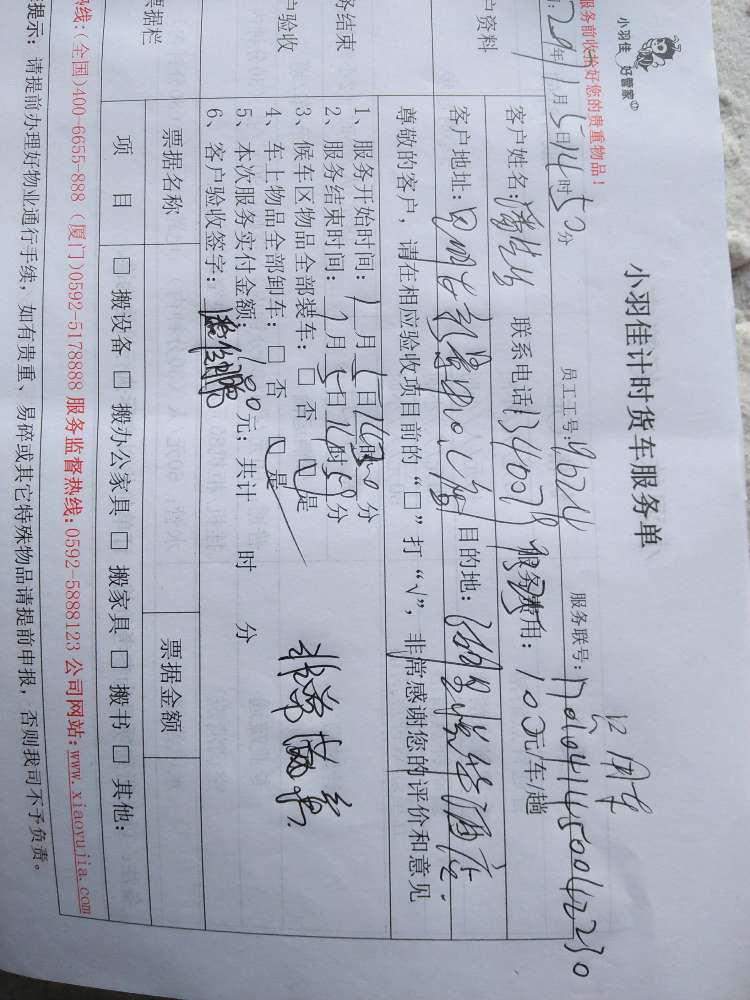 小羽佳 好管家
服务前收拾好您的贵重物品！
小羽佳计时货车服务单
年1月5日14时50分 员工工号：9674 服务联号：
户资料
客户姓名：潘先生 联系电话 服务费用：100元/车/趟
客户地址： 目的地：
务结束
户验收
尊敬的客户，请在相应验收项目前的“□”打“√”，非常感谢您的评价和意见
1、服务开始时间：1月5日 时 分
2、服务结束时间：1月5日 时 分
3、候车区物品全部装车：□ 否 □ 是
4、车上物品全部卸车：□ 否 □ 是
5、本次服务实付金额： 元；共计 时 分
6、客户验收签字：
非常满意
票据栏
票据名称 票据金额
项 目 □ 搬设备 □ 搬办公家具 □ 搬家具 □ 搬书 □ 其他：
热线：(全国)400-6655-888 (厦门)0592-5178888 服务监督热线：0592-5888123 公司网站：www.xiaoyujia.com
提示：请提前办理好物业通行手续，如有贵重、易碎或其它特殊物品请提前申报，否则我司不予负责。